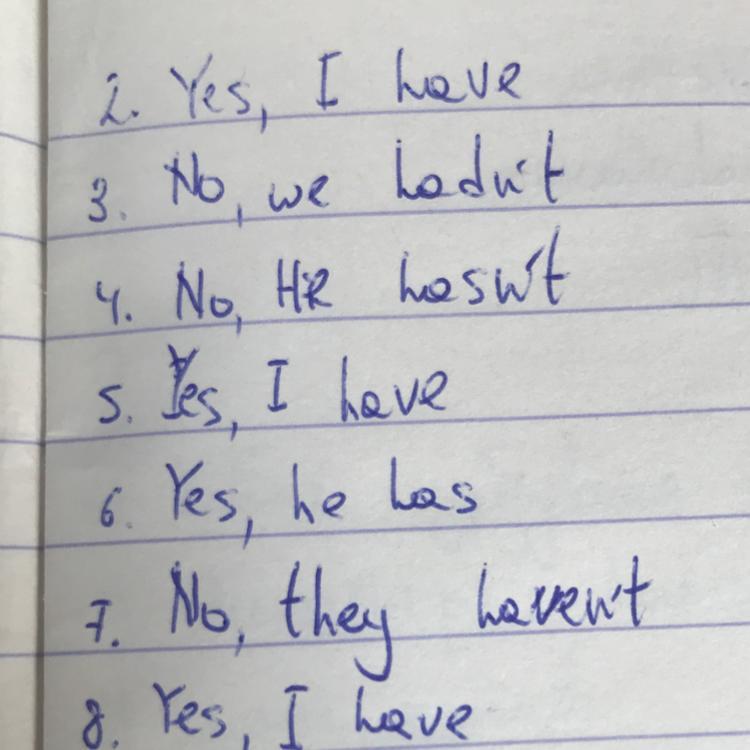 2. Yes, I have
3. No, we hadn't
4. No, HR hasn't
5. Yes, I have
6. Yes, he has
7. No, they haven't
8. Yes, I have